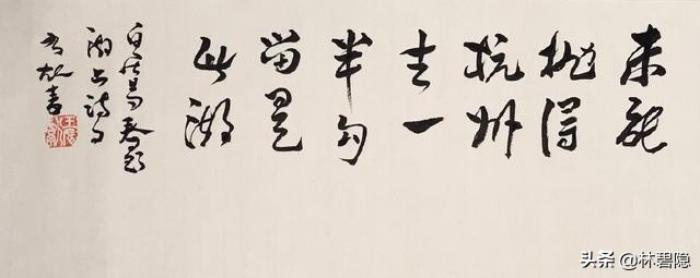 未能
抛得
杭州
去一
半勾
留是
此湖
白居易春題
湖上詩句
書
头条 @林碧隐